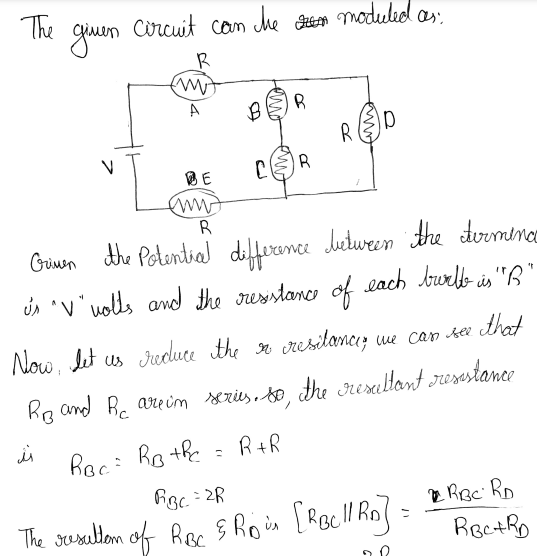 The given circuit can be moduled as:
R
A
B R
R D
V
C R
E
R
Given the Potential difference between the termina
is "V" volts and the resistance of each bulb is "R"
Now, let us reduce the resitance; we can see that
RB and Rc are in series. so, the resultant resistance
is RBC = RB + RC = R + R
RBC = 2R
The resultom of RBC & RD is [RBC || RD] = RBC · RD
RBC + RD